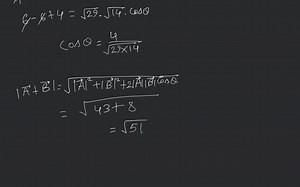 6-6+4 = √29 . √14 . cosθ
cosθ = 4/√29×14
|A⃗+B⃗| = √|A⃗|²+|B⃗|²+2|A⃗||B⃗|cosθ
= √43+8
= √51